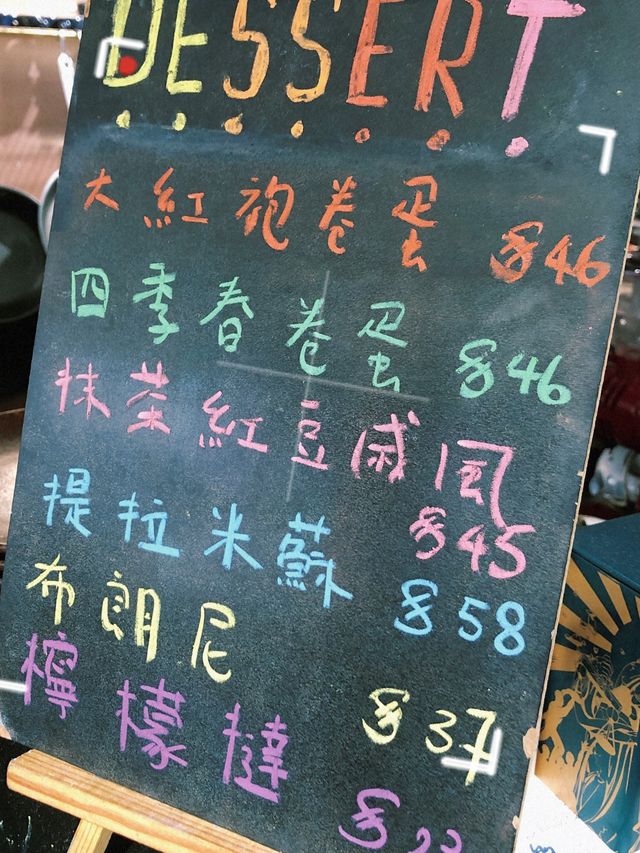 DESSERT
大紅袍卷蛋 $46
四季春卷蛋 $46
抹茶紅豆戚風
$45
提拉米蘇 $58
布朗尼
$37
檸檬撻
$